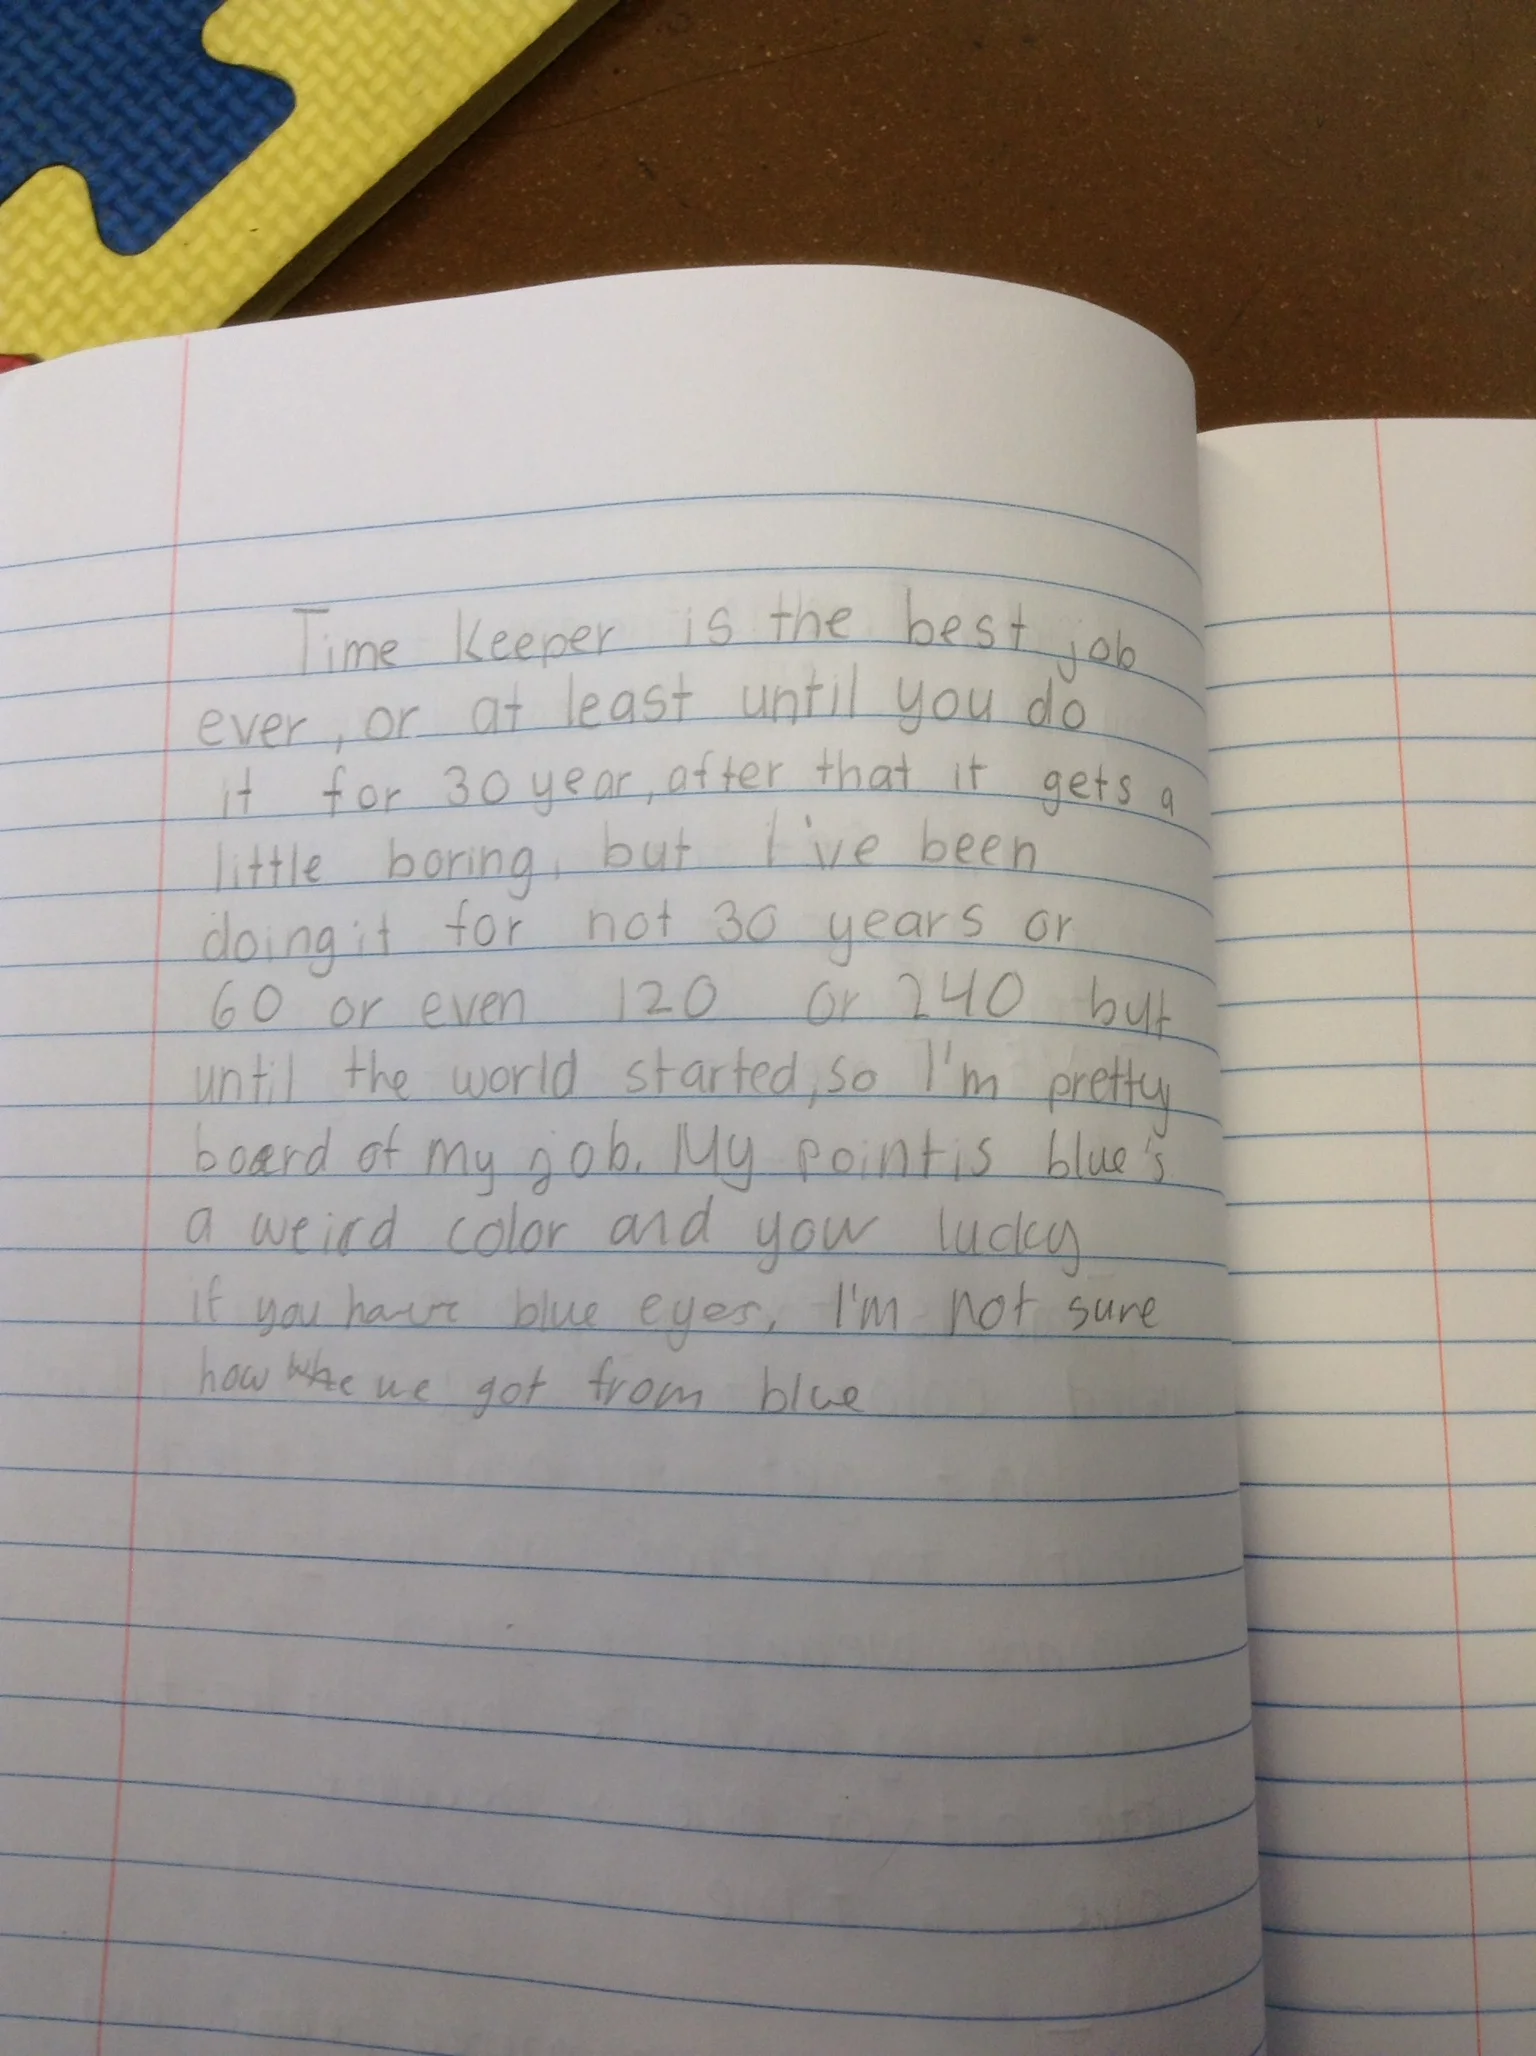 Time Keeper is the best job
ever, or at least until you do
it for 30 year, after that it gets a
little boring, but I've been
doing it for not 30 years or
60 or even 120 or 240 but
until the world started, so I'm pretty
board of my job. My point is blue's
a weird color and your lucky
if you have blue eyes, I'm not sure
how we got from blue